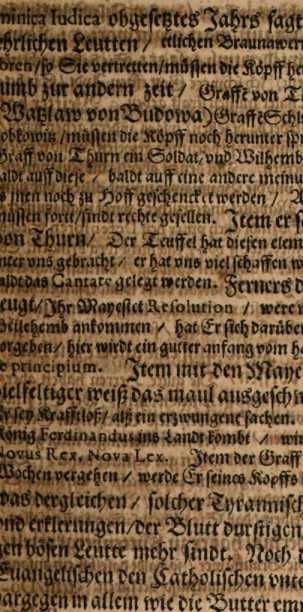 minica Iudica obgesetztes Jahrs sagt
ehrlichen Leutten / etlichen Braunawern
bren / so Sie vertretten / müssen die Köpff he
umb zur andern zeit / Graffe von T
Watzlaw von Budowa) Graff Schl
obkowitz / müssen die Köpff noch herunter spri
Graff von Thurn ein Soldat / vnd Wilhemb
aldt auff diese / baldt auff eine andere meinu
s jnen noch zu Hoff geschenckt werden / A
müssen fort / sindt rechte gesellen. Item er s
von Thurn / Der Teuffel hat diesen elem
nter vns gebracht / er hat vns viel schaffen w
aldt das Cantate gelegt werden. Ferners d
eugt / Ihr Mayestet Resolution / were
Betlehemb ankommen / hat Er sich darüber
orgeben / hier wirdt ein gutter anfang vom h
e principium. Item mit den Maye
vielfeltiger weiß das maul ausgeschw
Er sey Krafftloß / alß ein erzwungene sachen.
König Ferdinandus ins Landt kombt / wir
Novus Rex, Nova Lex. Item der Graff
Wochen vergehen / werde Er seines Kopffs
was dergleichen / solcher Tyrannisch
vnd erklerungen / der Blutt durstigen
gen bösen Leutte mehr sindt. Noch
Euangelischen den Catholischen vnte
dargegen in allem wie die Butter em